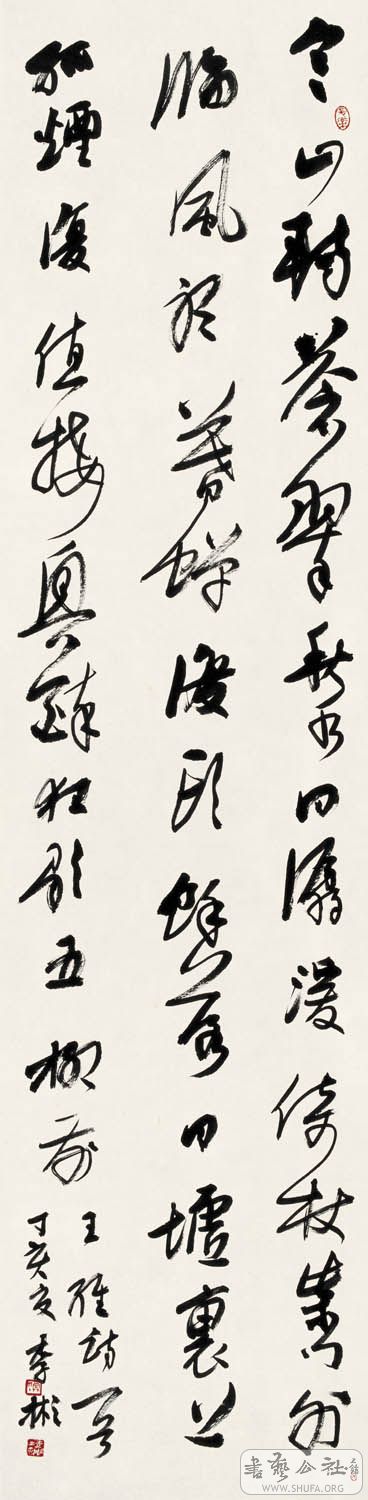 寒山轉蒼翠秋水日潺湲倚杖柴門外
臨風聽暮蟬渡頭餘落日墟裏上
孤煙復值接輿醉狂歌五柳前
王維詩一首
丁亥夏李彬
書藝公社
WWW.SHUFA.ORG